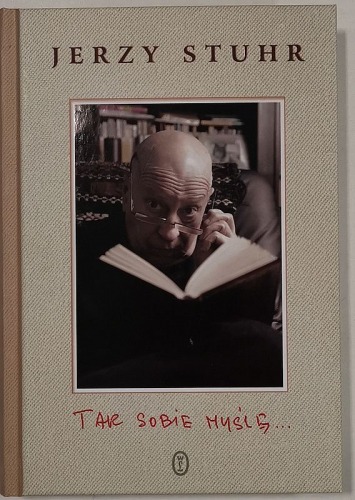 JERZY STUHR
TAK SOBIE MYŚLĘ...